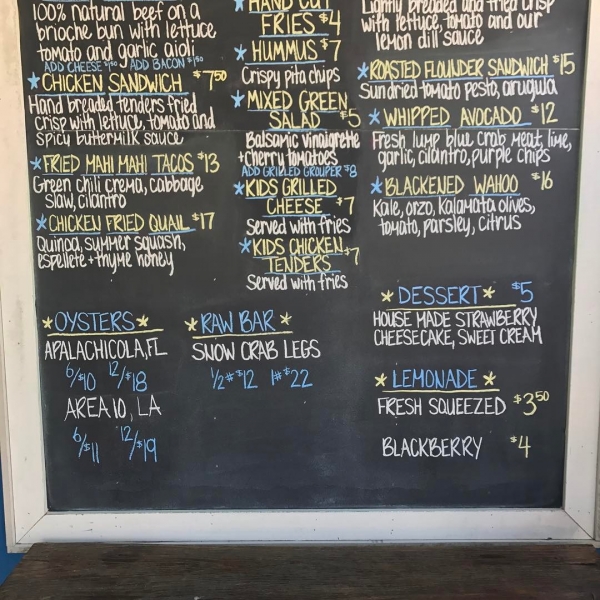 100% natural beef on a
brioche bun with lettuce
tomato and garlic aioli
ADD CHEESE $1.50 ADD BACON $1.50
*CHICKEN SANDWICH $7.50
Hand breaded tenders fried
crisp with lettuce, tomato and
spicy buttermilk sauce
*FRIED MAHI MAHI TACOS $13
Green chili crema, cabbage
slaw, cilantro
*CHICKEN FRIED QUAIL $17
Quinoa, summer squash,
espellete + thyme honey
*HAND CUT
FRIES $4
*HUMMUS $7
Crispy pita chips
*MIXED GREEN
SALAD $5
Balsamic vinaigrette
+cherry tomatoes
ADD GRILLED GROUPER $8
*KIDS GRILLED
CHEESE $7
Served with fries
*KIDS CHICKEN
TENDERS $7
Served with fries
Lightly breaded and fried crisp
with lettuce, tomato and our
lemon dill sauce
*ROASTED FLOUNDER SANDWICH $15
Sundried tomato pesto, arugula
*WHIPPED AVOCADO $12
Fresh lump blue crab meat, lime,
garlic, cilantro, purple chips
*BLACKENED WAHOO $16
Kale, orzo, kalamata olives,
tomato, parsley, citrus
*OYSTERS*
APALACHICOLA, FL
6/$10 12/$18
AREA 10, LA
6/$11 12/$19
*RAW BAR*
SNOW CRAB LEGS
1/2# $12 1# $22
*DESSERT* $5
HOUSE MADE STRAWBERRY
CHEESECAKE, SWEET CREAM
*LEMONADE*
FRESH SQUEEZED $3.50
BLACKBERRY $4